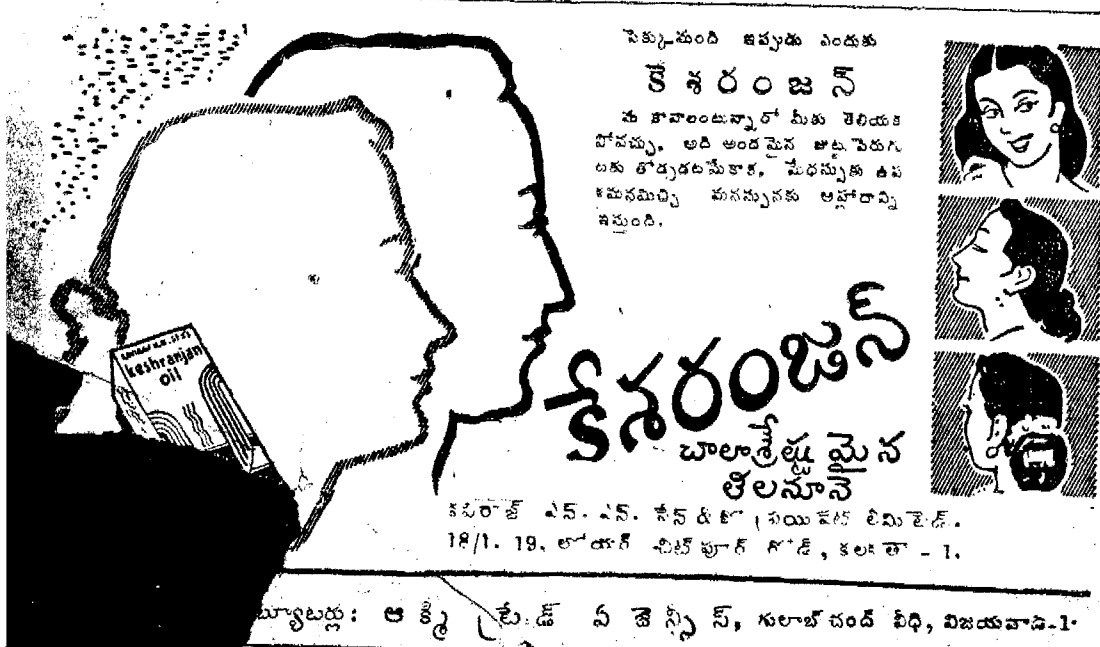 పెక్కుమంది ఇప్పుడు ఎందుకు
కేశరంజన్
ను కావాలంటున్నారో మీకు తెలియక
పోవచ్చు. అది అందమైన జుట్టు పెరుగు
టకు తోడ్పడటమేకాక, మేధస్సుకు ఉప
శమనమిచ్చి మనస్సునకు ఆహ్లాదాన్ని
ఇస్తుంది.
keshranjan
oil
కేశరంజన్
చాలాశ్రేష్ఠమైన
తలనూనె
కవిరాజ్ ఎన్. ఎన్. సేన్ & కో ప్రయివేట్ లిమిటెడ్.
18/1. 19, లోయర్ చిట్‌పూర్ రోడ్, కలకత్తా - 1.
బ్యూటర్లు: ఆక్మీ ట్రేడ్ ఏజెన్సీస్, గులాబ్‌చంద్ వీధి, విజయవాడ-1.